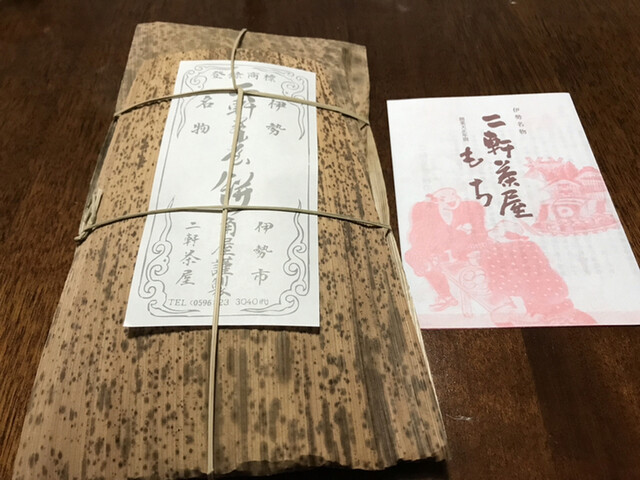 登録商標
伊勢
名物
二軒茶屋餅
角屋謹製
伊勢市
二軒茶屋
TEL (0596) 23 3040
伊勢名物
二軒茶屋
もち